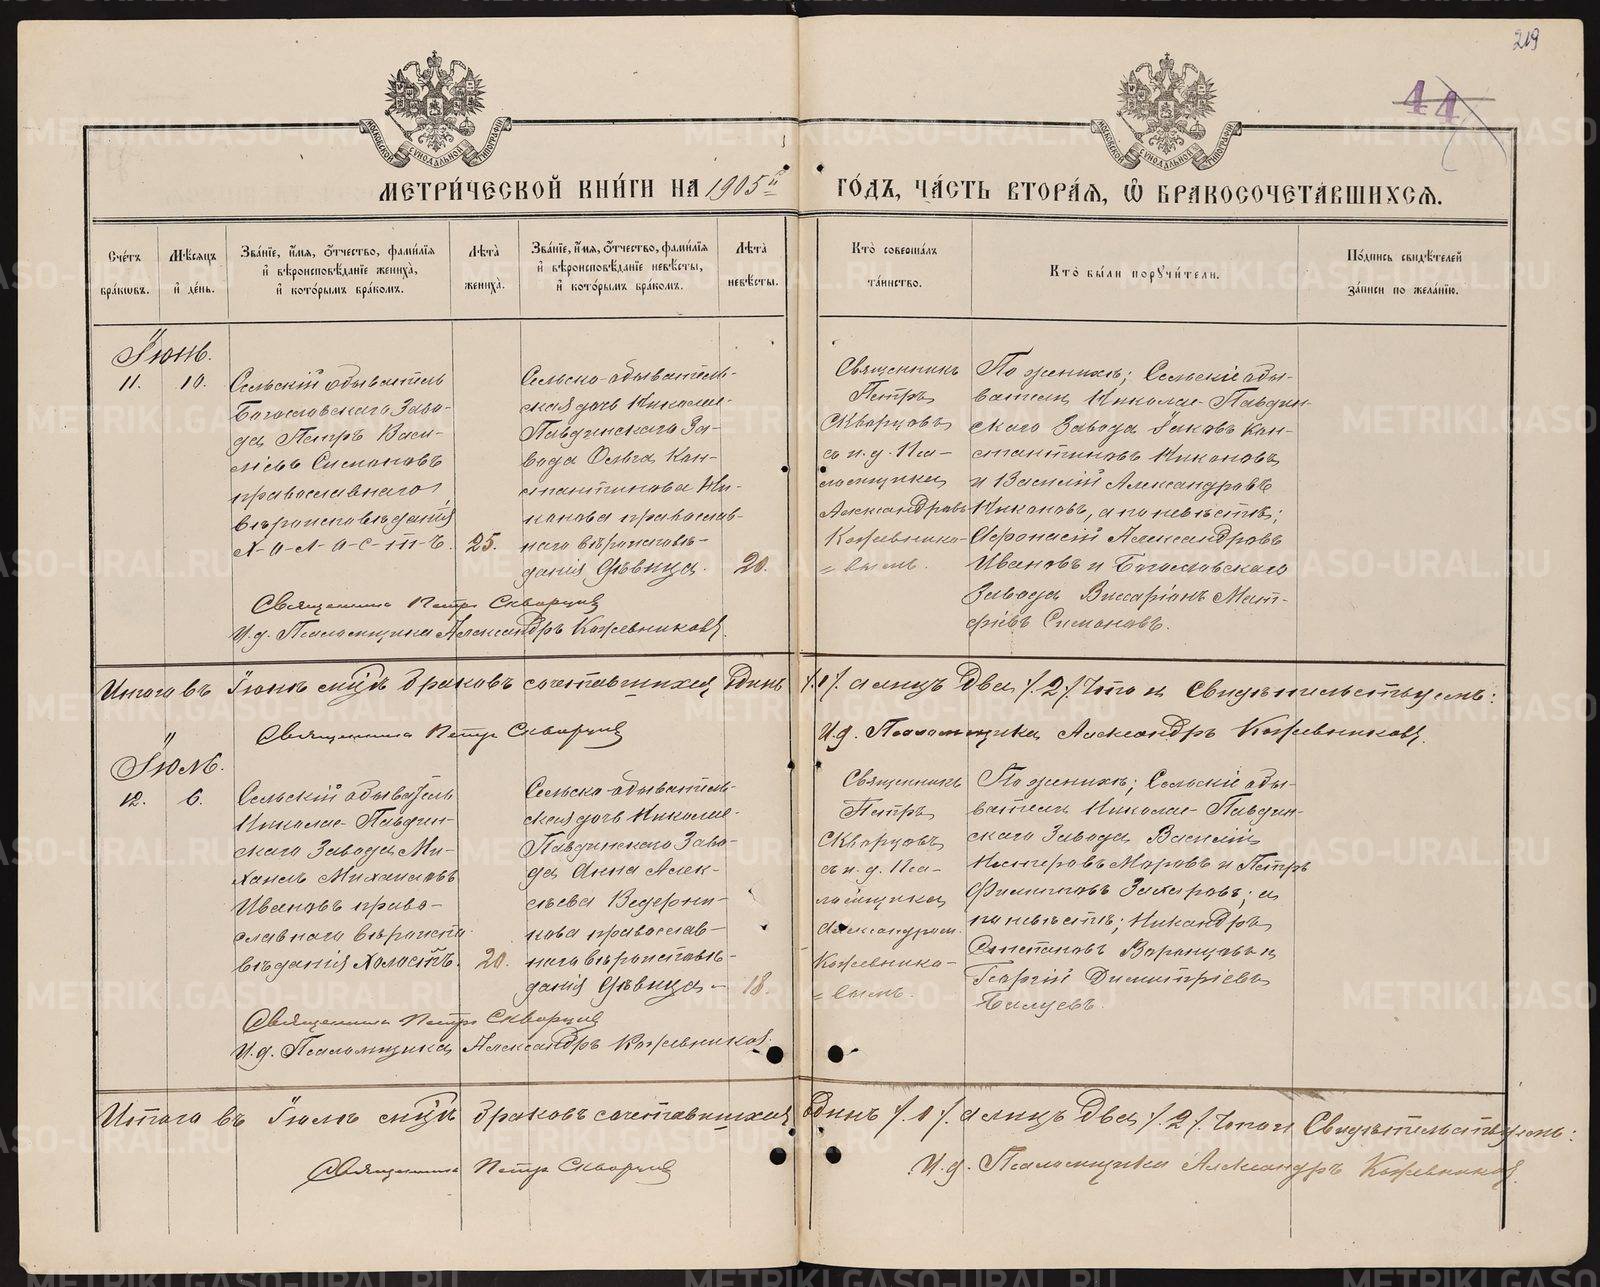 219
44
МОСКОВСКОЙ СУНОДАЛЬНОЙ ТИПОГРАФІИ
МОСКОВСКОЙ СУНОДАЛЬНОЙ ТИПОГРАФІИ
МЕТРИ́ЧЕСКОЙ КНИ́ГИ НА 1905й ГО́ДЪ, ЧА́СТЬ ВТОРА́Я, Ѡ БРАКОСОЧЕТА́ВШИХСѦ.
Сче́тъ бра́ковъ.
Мѣ́сяцъ и де́нь.
Зва́нїе, и́мя, ѻ́тчество, фами́лїя
и҆ вѣроисповѣ́данїе жениха̀,
и҆ кото́рымъ бра́комъ.
Лѣта̀ жениха̀.
Зва́нїе, и́мя, ѻ́тчество, фами́лїя
и҆ вѣроисповѣ́данїе невѣ́сты,
и҆ кото́рымъ бра́комъ.
Лѣта̀ невѣ́сты.
Кто̀ соверша́лъ та́инство.
Кто̀ бы́ли поручи́тели.
По́дпись свидѣ́телей за́писи по жела́нїю.
Іюнь.
11. 10.
Сельскій обыватель
Богословскаго Заво-
да Петръ Васи-
ліевъ Симоновъ
православнаго
вѣроисповѣданія
х-о-л-о-с-т-ъ. 25.
Сельско-обыватель-
ская дочь Николае-
Павдинскаго За-
вода Ольга Кон-
стантинова Ни-
конова православ-
наго вѣроисповѣ-
данія дѣвица. 20.
Священникъ
Петръ
Скворцовъ
съ и. д. Пса-
ломщика
Александромъ
Кожевнико-
= вымъ.
По женихѣ; Сельскіе обы-
ватели Николае-Павдин-
скаго Завода Іаковъ Кон-
стантиновъ Никоновъ
и Василій Александровъ
Никоновъ, а по невѣстѣ;
Афонасій Александровъ
Ивановъ и Богословскаго
Завода Виссаріонъ Мат-
фіевъ Симоновъ.
Священникъ Петръ Скворцовъ
И. д. Псаломщика Александръ Кожевниковъ.
Итого въ Іюнѣ мцѣ браковъ сочетавшихся Одинъ /.1/. а лицъ Два /.2/. Что и Свидѣтельствуемъ:
Священникъ Петръ Скворцовъ
И. д. Псаломщика Александръ Кожевниковъ.
Іюль.
12. 6.
Сельскій обыватель
Николае-Павдин-
скаго Завода Ми-
хаилъ Михаиловъ
Ивановъ право-
славнаго вѣроиспо-
вѣданія холостъ. 20.
Сельско-обыватель-
ская дочь Николае-
Павдинскаго Заво-
да Анна Алек-
сѣева Ведерни-
кова православ-
наго вѣроисповѣ-
данія дѣвица - 18.
Священникъ
Петръ
Скворцовъ
съ и. д. Пса-
ломщика
Александромъ
Кожевнико-
= вымъ.
По женихѣ; Сельскіе обы-
ватели Николае-Павдин-
скаго Завода Василій
Нестеровъ Моровъ и Петръ
Филиповъ Захаровъ; а
по невѣстѣ; Никандръ
Степановъ Воронцовъ и
Георгій Димитріевъ
Балуевъ.
Священникъ Петръ Скворцовъ
И. д. Псаломщика Александръ Кожевниковъ.
Итого въ Іюлѣ мцѣ браковъ сочетавшихся Одинъ /.1/. а лицъ Два /.2/. Что и Свидѣтельствуемъ:
Священникъ Петръ Скворцовъ
И. д. Псаломщика Александръ Кожевниковъ.
METRIKI.GASO-URAL.RU